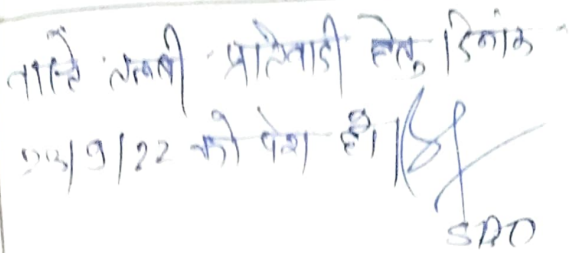 वास्ते तलबी प्रतिवादी हेतु दिनांक
/9/22 को पेश हो।
SDO